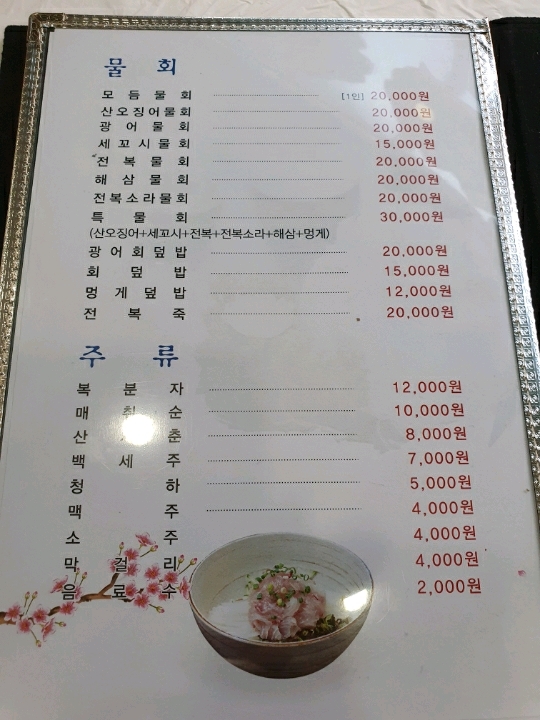 물 회
모 듬 물 회 [1인] 20,000원
산오징어물회 20,000원
광 어 물 회 20,000원
세 꼬 시 물 회 15,000원
전 복 물 회 20,000원
해 삼 물 회 20,000원
전복소라물회 20,000원
특 물 회 30,000원
(산오징어+세꼬시+전복+전복소라+해삼+멍게)
광어회덮밥 20,000원
회 덮 밥 15,000원
멍 게 덮 밥 12,000원
전 복 죽 20,000원
주 류
복 분 자 12,000원
매 취 순 10,000원
산 춘 8,000원
백 세 주 7,000원
청 하 5,000원
맥 주 4,000원
소 주 4,000원
막 걸 리 4,000원
음 료 수 2,000원